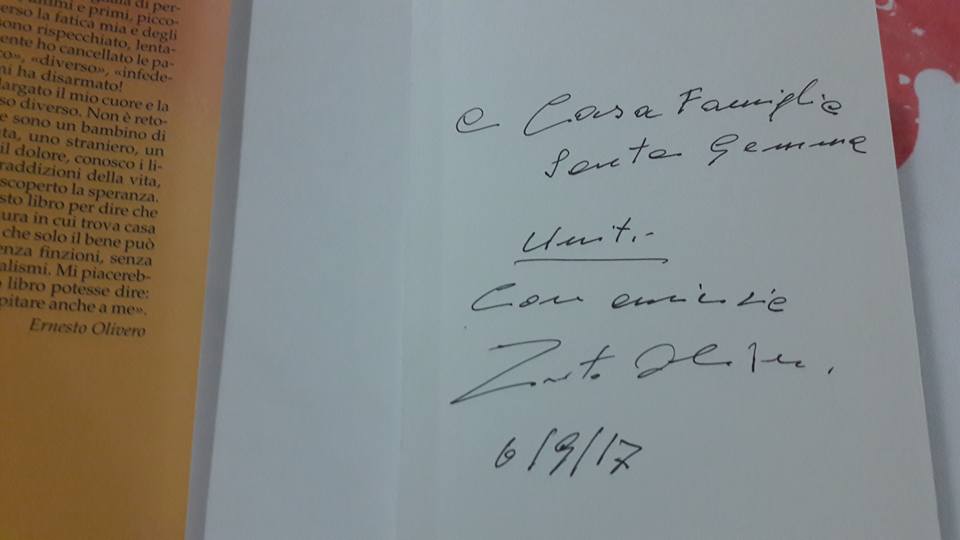 guida di per-
ultimi e primi, picco-
verso la fatica mia e degli
sono rispecchiato, lenta-
ente ho cancellato le pa-
co», «diverso», «infede-
mi ha disarmato!
largato il mio cuore e la
so diverso. Non è reto-
e sono un bambino di
ta, uno straniero, un
il dolore, conosco i li-
raddizioni della vita,
scoperto la speranza.
sto libro per dire che
ura in cui trova casa
che solo il bene può
enza finzioni, senza
alismi. Mi piacereb-
libro potesse dire:
pitare anche a me».
Ernesto Olivero
a Casa Famiglia
Santa Gemma
Uniti
Con amicizia
Ernesto Olivero
6/9/17